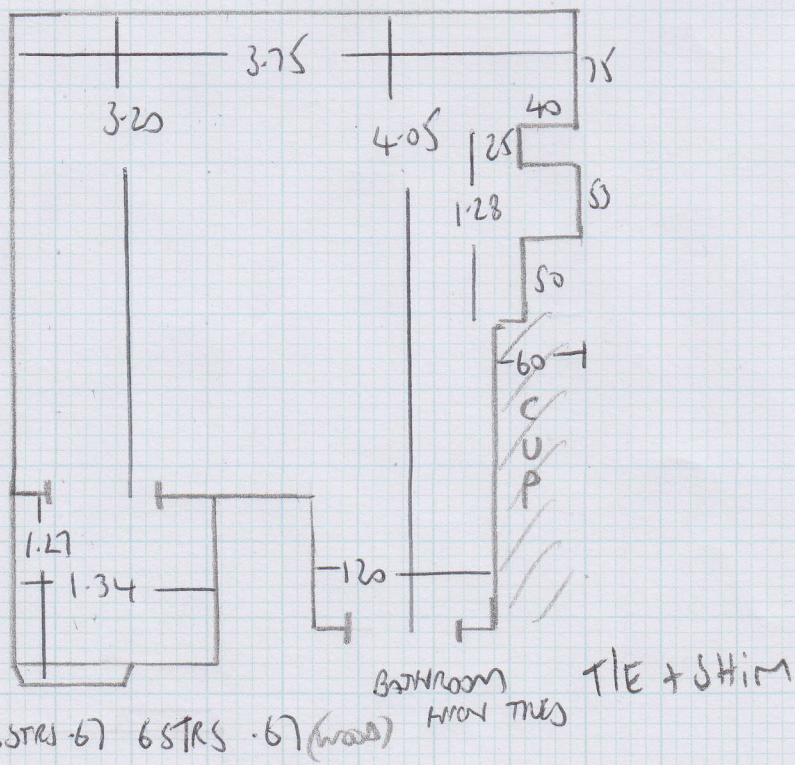 3.75
75
3.20
40
4.05
25
1.28
53
50
60
CUP
1.27
1.34
120
BATHROOM
TILES
T/E + SHIM
STRS .67 6 STRS .67 (WOOD)